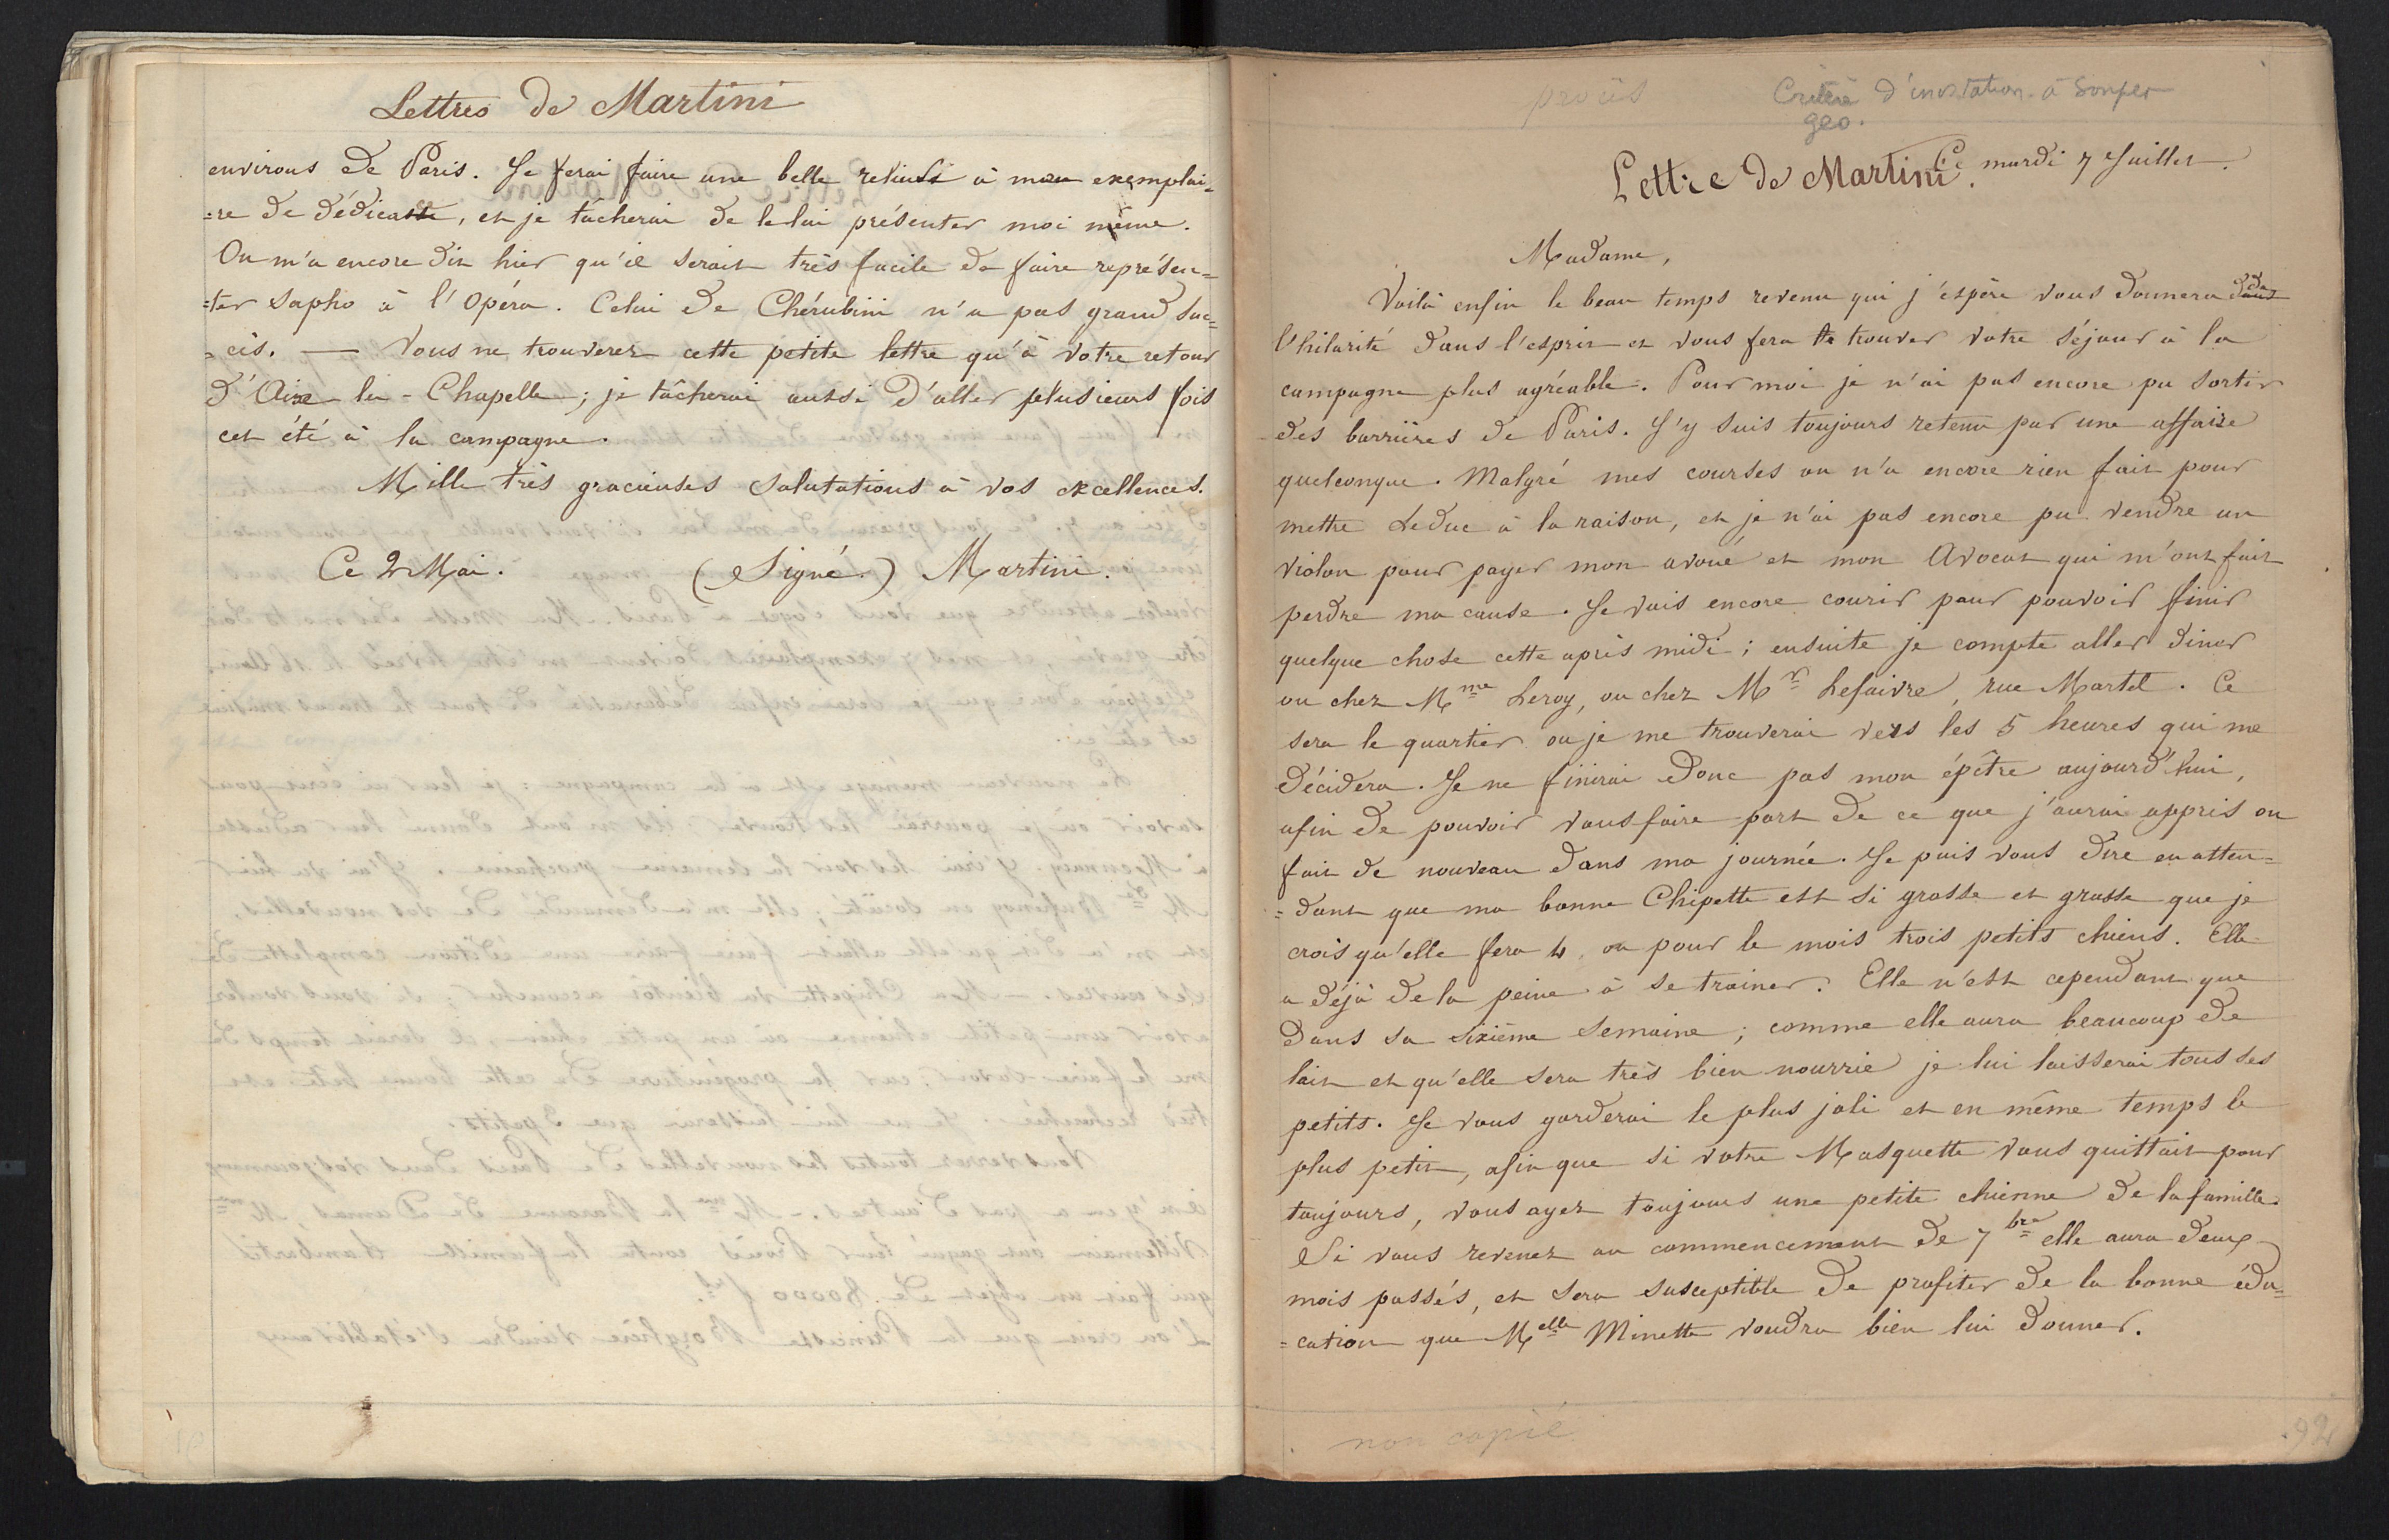 Lettres de Martini
environs de Paris. Je ferai faire une belle reliure à mon exemplai-
=re de dédicasse, et je tâcherai de le lui présenter moi même.
On m'a encore dit hier qu'il serait très facile de faire représen=
=ter Sapho à l'Opéra. Celui de Chérubini n'a pas grand suc=
=cès. — Vous ne trouverez cette petite lettre qu'à votre retour
d'Aix-la-Chapelle; je tâcherai aussi d'aller plusieurs fois
cet été à la campagne.
Mille très gracieuses salutations à vos excellences.
Ce 2 Mai. (Signé.) Martini.
procès
d'invitation à souper
geo.
Ce mardi 7 Juillet.
Lettre de Martini.
Madame,
Voilà enfin le beau temps revenu qui j'espère vous donnera de
l'hilarité dans l'esprit et vous fera trouver votre séjour à la
campagne plus agréable. Pour moi je n'ai pas encore pu sortir
des barrières de Paris. J'y suis toujours retenu par une affaire
quelconque. Malgré mes courses on n'a encore rien fait pour
mettre Leduc à la raison, et je n'ai pas encore pu vendre un
violon pour payer mon avoué et mon Avocat qui m'ont fait
perdre ma cause. Je vais encore courir pour pouvoir finir
quelque chose cette après midi; ensuite je compte aller diner
ou chez Mme Leroy, ou chez Mr Lefaivre, rue Martel. Ce
sera le quartier ou je me trouverai vers les 5 heures qui me
décidera. Je ne finirai donc pas mon épître aujourd'hui,
afin de pouvoir vous faire part de ce que j'aurai appris ou
fait de nouveau dans ma journée. Je puis vous dire en atten=
=dant que ma bonne Chipette est si grosse et grasse que je
crois qu'elle fera 4 ou pour le mois trois petits chiens. Elle
a déjà de la peine à se trainer. Elle n'est cependant que
dans sa sixième semaine; comme elle aura beaucoup de
lait et qu'elle sera très bien nourrie je lui laisserai tous ses
petits. Je vous garderai le plus joli et en même temps le
plus petit, afin que si votre Masquette vous quittait pour
toujours, vous ayez toujours une petite chienne de la famille.
Si vous revenez au commencement de 7bre elle aura deux
mois passés, et sera susceptible de profiter de la bonne édu=
=cation que Melle Minette voudra bien lui donner.
non copié
92